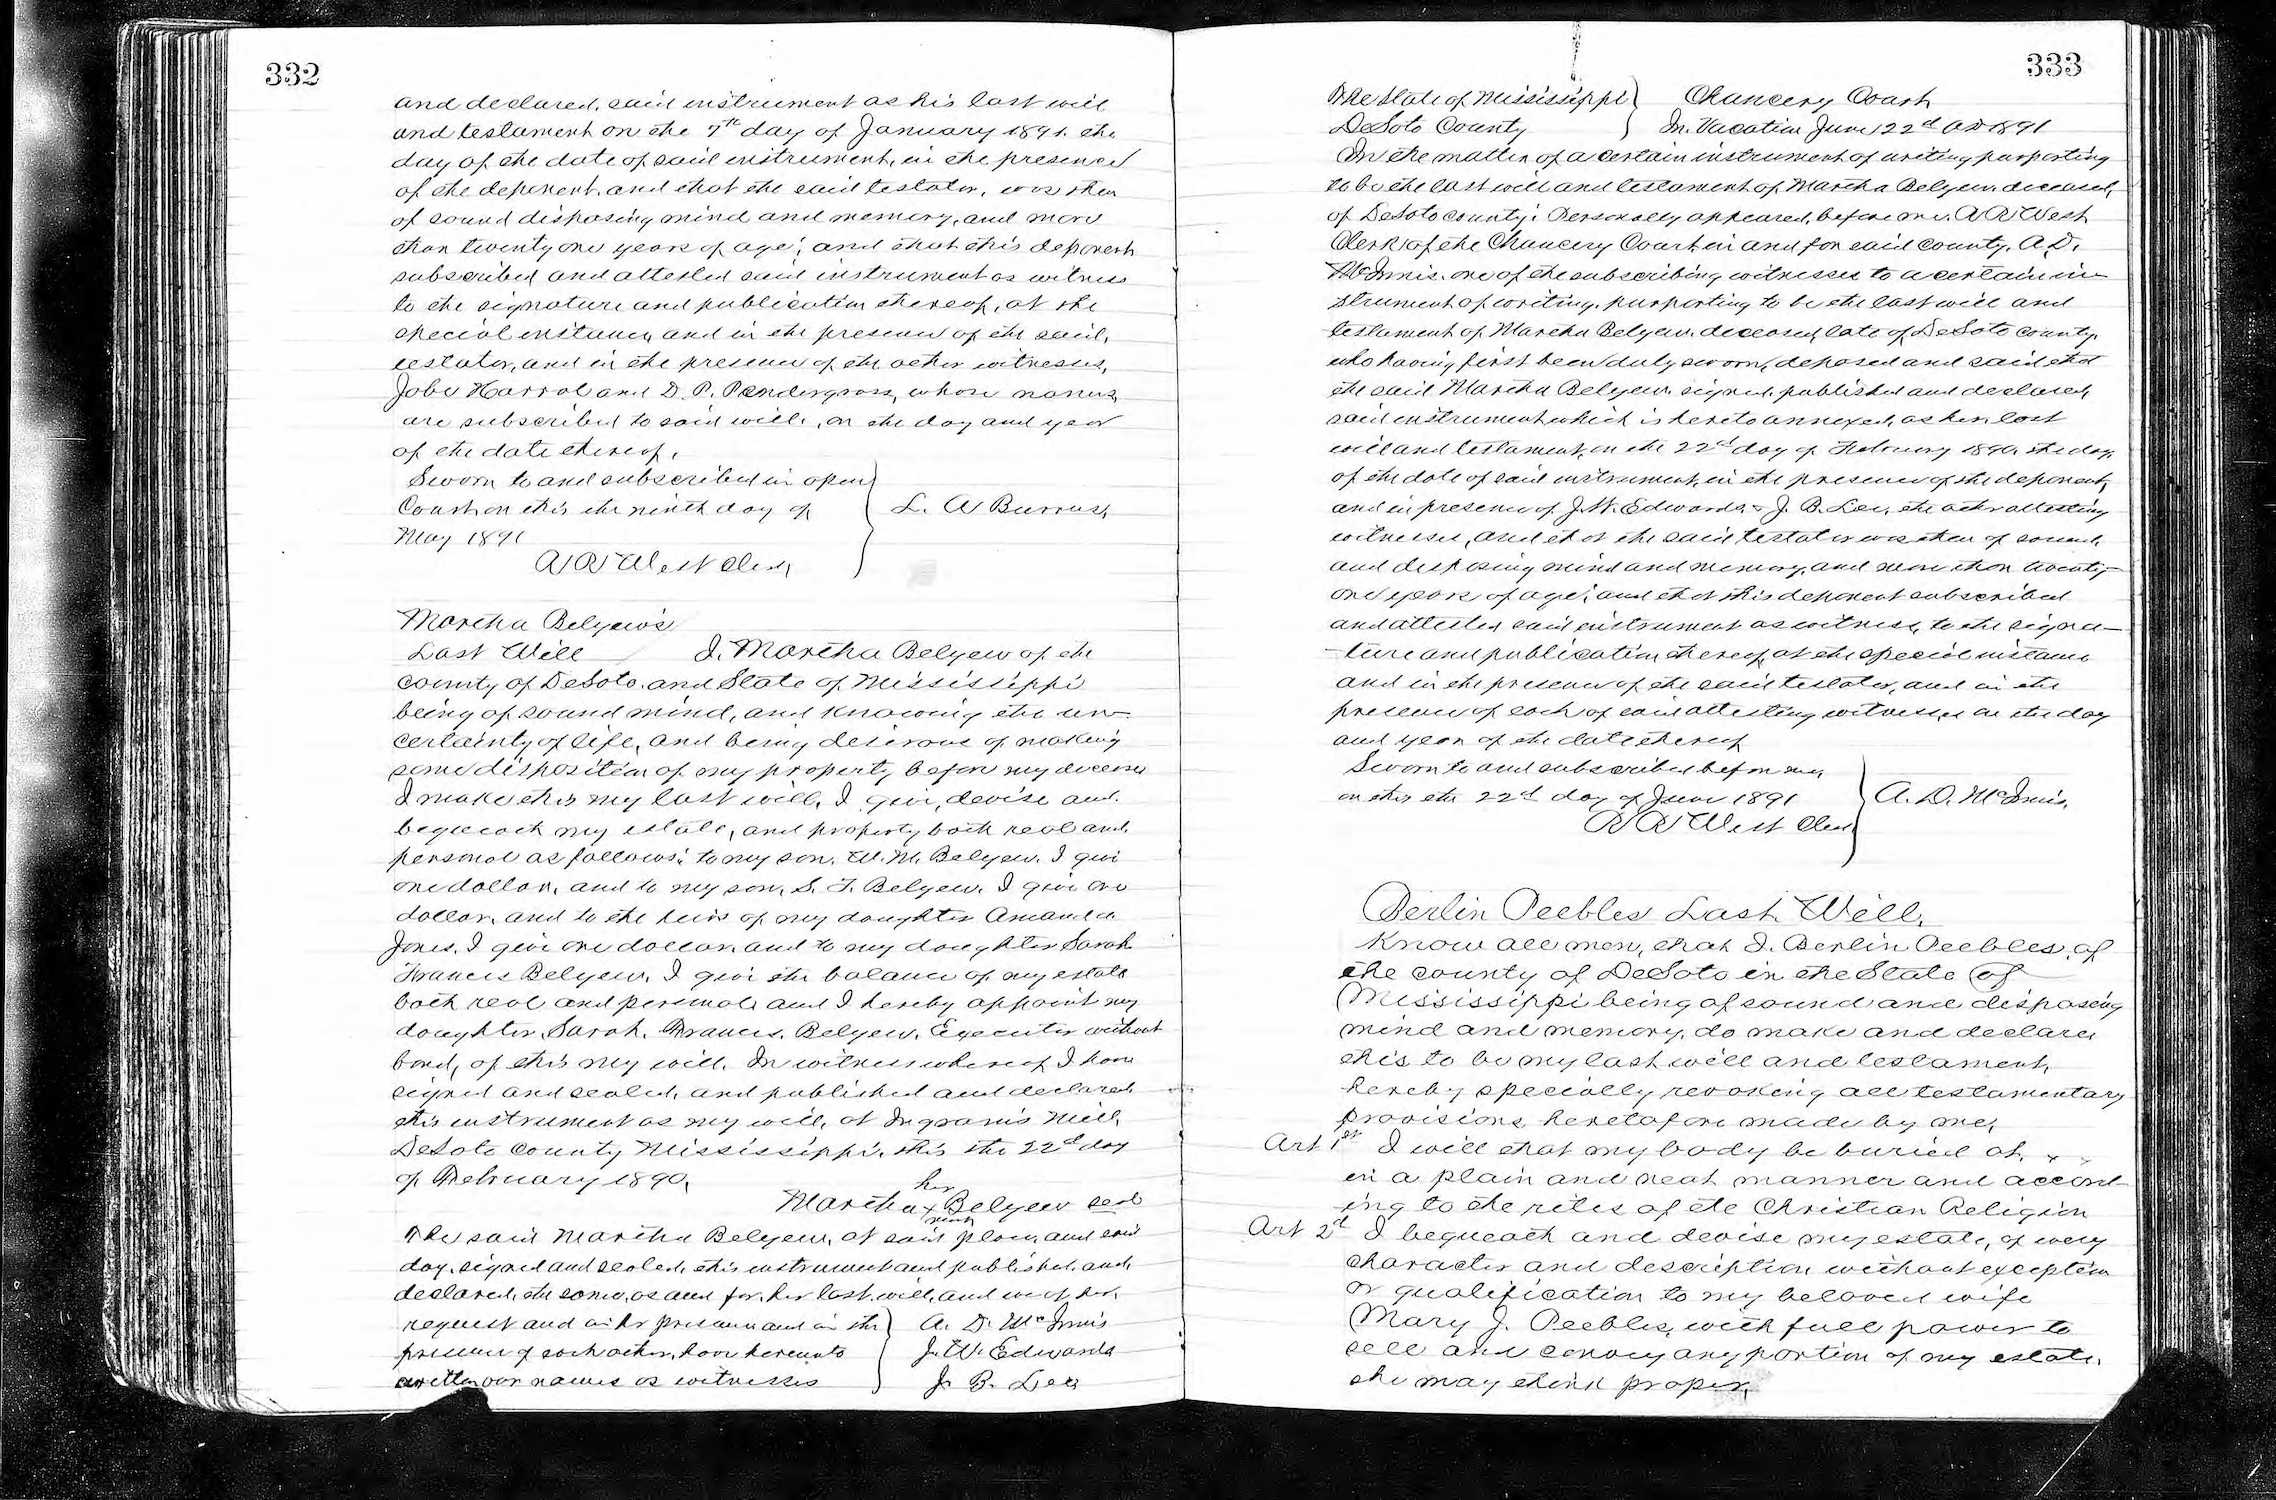 332
and declared, said instrument as his last will
and testament on the 7th day of January 1891. the
day of the date of said instrument, in the presence
of the deponent. and that the said testator, was then
of sound disposing mind and memory, and more
than twenty one years of age; and that this deponent
subscribed and attested said instrument as witness
to the signature and publication thereof, at the
special instance, and in the presence of the said,
testator, and in the presence of the other witnesses,
Jobe Harral and D. P. Pendergrass, whose names
are subscribed to said will, on the day and year
of the date thereof.
Sworn to and subscribed in open
Court on this the ninth day of
May 1891
L. A Burrus,
A R West Clerk
Martha Belyew's
Last Will I. Martha Belyew of the
County of DeSoto. and State of Mississippi
being of sound mind, and knowing the un-
certainty of life, and being desirous of making
some disposition of my property before my decease
I make this my last will, I give, devise and.
bequeath my estate, and property both real and.
personal as follows: to my son. W. M. Belyew. I give
one dollar, and to my son, S. F. Belyew. I give one
dollar, and to the heirs of my daughter Amanda
Jones. I give one dollar. and to my daughter Sarah
Francis Belyew. I give the balance of my estate
both real and personal. and I hereby appoint my
daughter, Sarah. Francis. Belyew. Executor without
bond, of this my will. In witness whereof I have
signed and sealed, and published and declared
this instrument as my will, at Ingram's Mill,
DeSoto County Mississippi. this the 22d day
of February 1890,
her
Martha x Belyew seal
mark
The said Martha Belyew, at said place, and said
day, signed and sealed, this instrument and published. and,
declared, the same, as and for, her last. will, and we at her,
request and in her presence and in the
presence of each other, have hereunto
written our names as witnesses
A. D. McInnis
J. W. Edwards
J. B. Lee
333
The State of Mississippi
DeSoto County
Chancery Court
In. Vacation June 22d AD 1891
In the matter of a certain instrument of writing purporting
to be the last will and testament of Martha Belyew. deceased,
of DeSoto county: Personally appeared, before me. A R West
Clerk of the Chancery Court in and for said county. A. D.
McInnis. one of the subscribing witnesses to a certain in-
strument of writing. purporting to be the last will and
testament of Martha Belyew. deceased, late of DeSoto county.
who having first been duly sworn, deposed and said that
the said Martha Belyew. signed. published and declared,
said instrument which is hereto annexed, as her last
will and testament, on the 22d day of February 1890. the day,
of the date of said instrument, in the presence of the deponent,
and in presence of J. W. Edwards. & J. B. Lee, the other attesting
witnesses, and that the said testator was then of sound.
and disposing mind and memory, and more than twenty-
one years of age; and that this deponent subscribed
and attested said instrument as witness, to the signa-
-ture and publication thereof, at the special instance
and in the presence of the said testator, and in the
presence of each of said attesting witnesses on the day
and year of the date thereof
Sworn to and subscribed before me,
on this the 22d day of June 1891
A. D. McInnis,
A R West Clerk
Berlin Peebles Last Will.
Know all men, that I. Berlin Peebles, of
the county of DeSoto in the State of
Mississippi being of sound and disposing
mind and memory, do make and declare
this to be my last will and testament,
hereby specially revoking all testamentary
provisions, heretofore made by me,
Art 1st I will that my body be buried at, x x
in a plain and neat manner and accord-
ing to the rites of the Christian Religion
Art 2d I bequeath and devise my estate, of every
character and description without exception
or qualification to my beloved wife
Mary J. Peebles, with full power to
sell and convey any portion of my estate.
she may think proper,